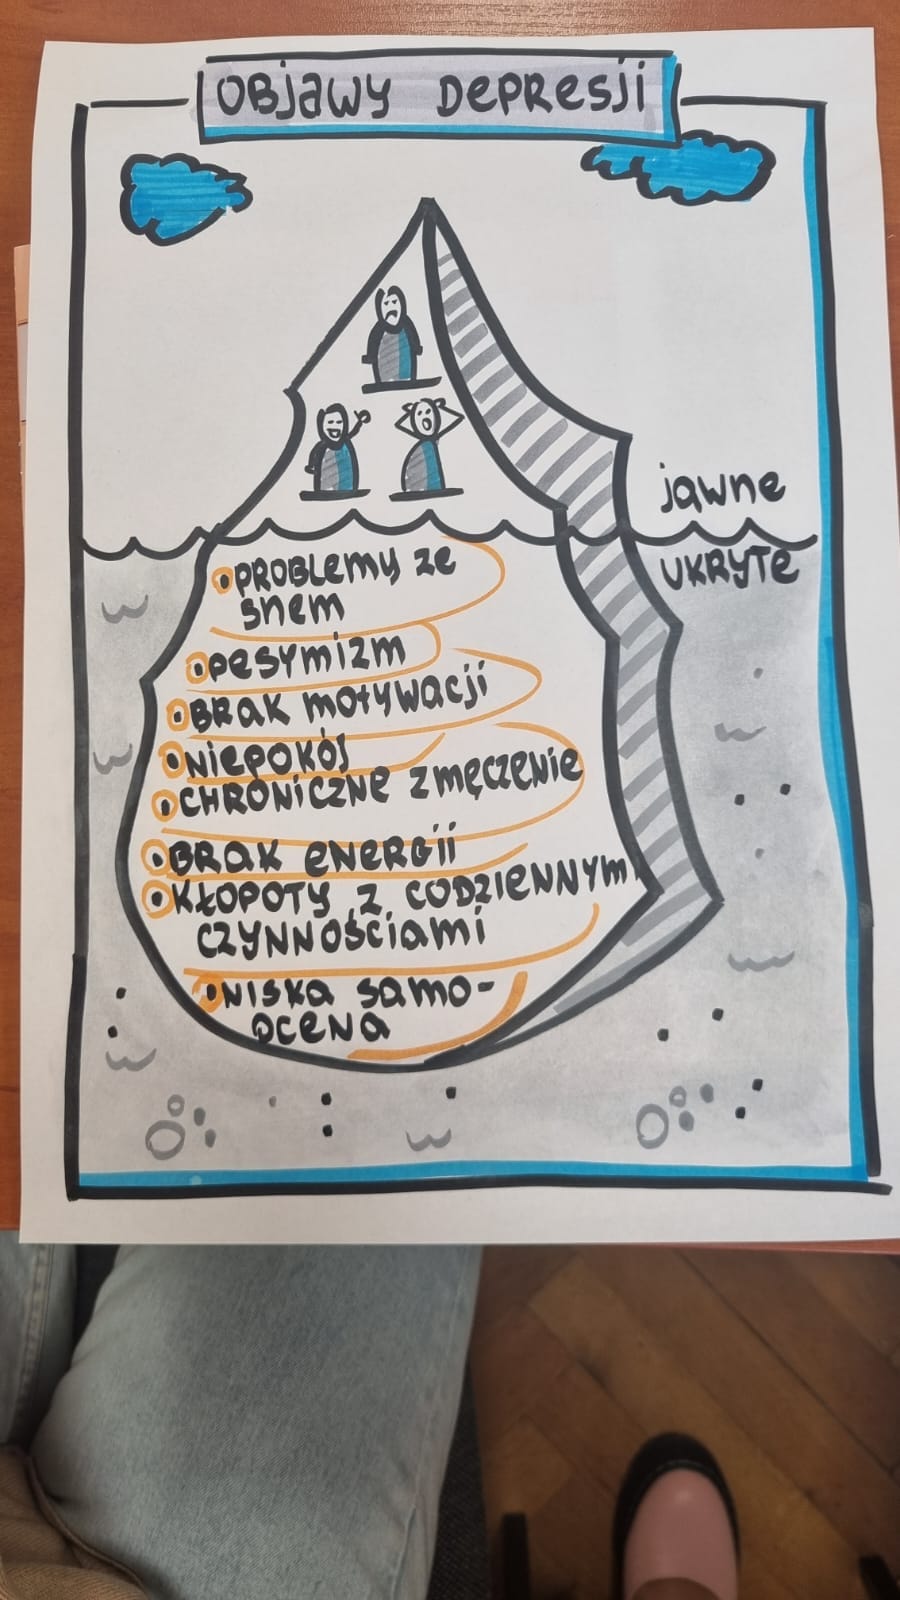 OBJAWY DEPRESJI
jawne
UKRYTE
• PROBLEMY ZE
SNEM
• PESYMIZM
• BRAK MOTYWACJI
• NIEPOKÓJ
• CHRONICZNE ZMĘCZENIE
• BRAK ENERGII
• KŁOPOTY Z CODZIENNYM
CZYNNOŚCIAMI
• NISKA SAMO-
OCENA